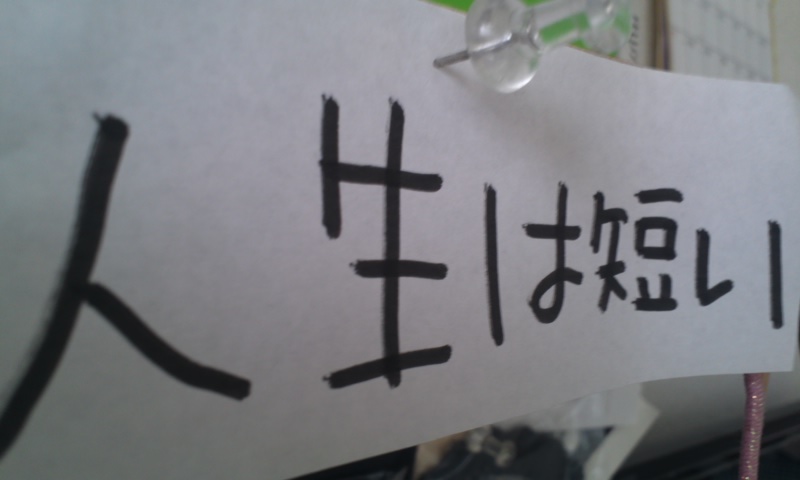 人生は短い